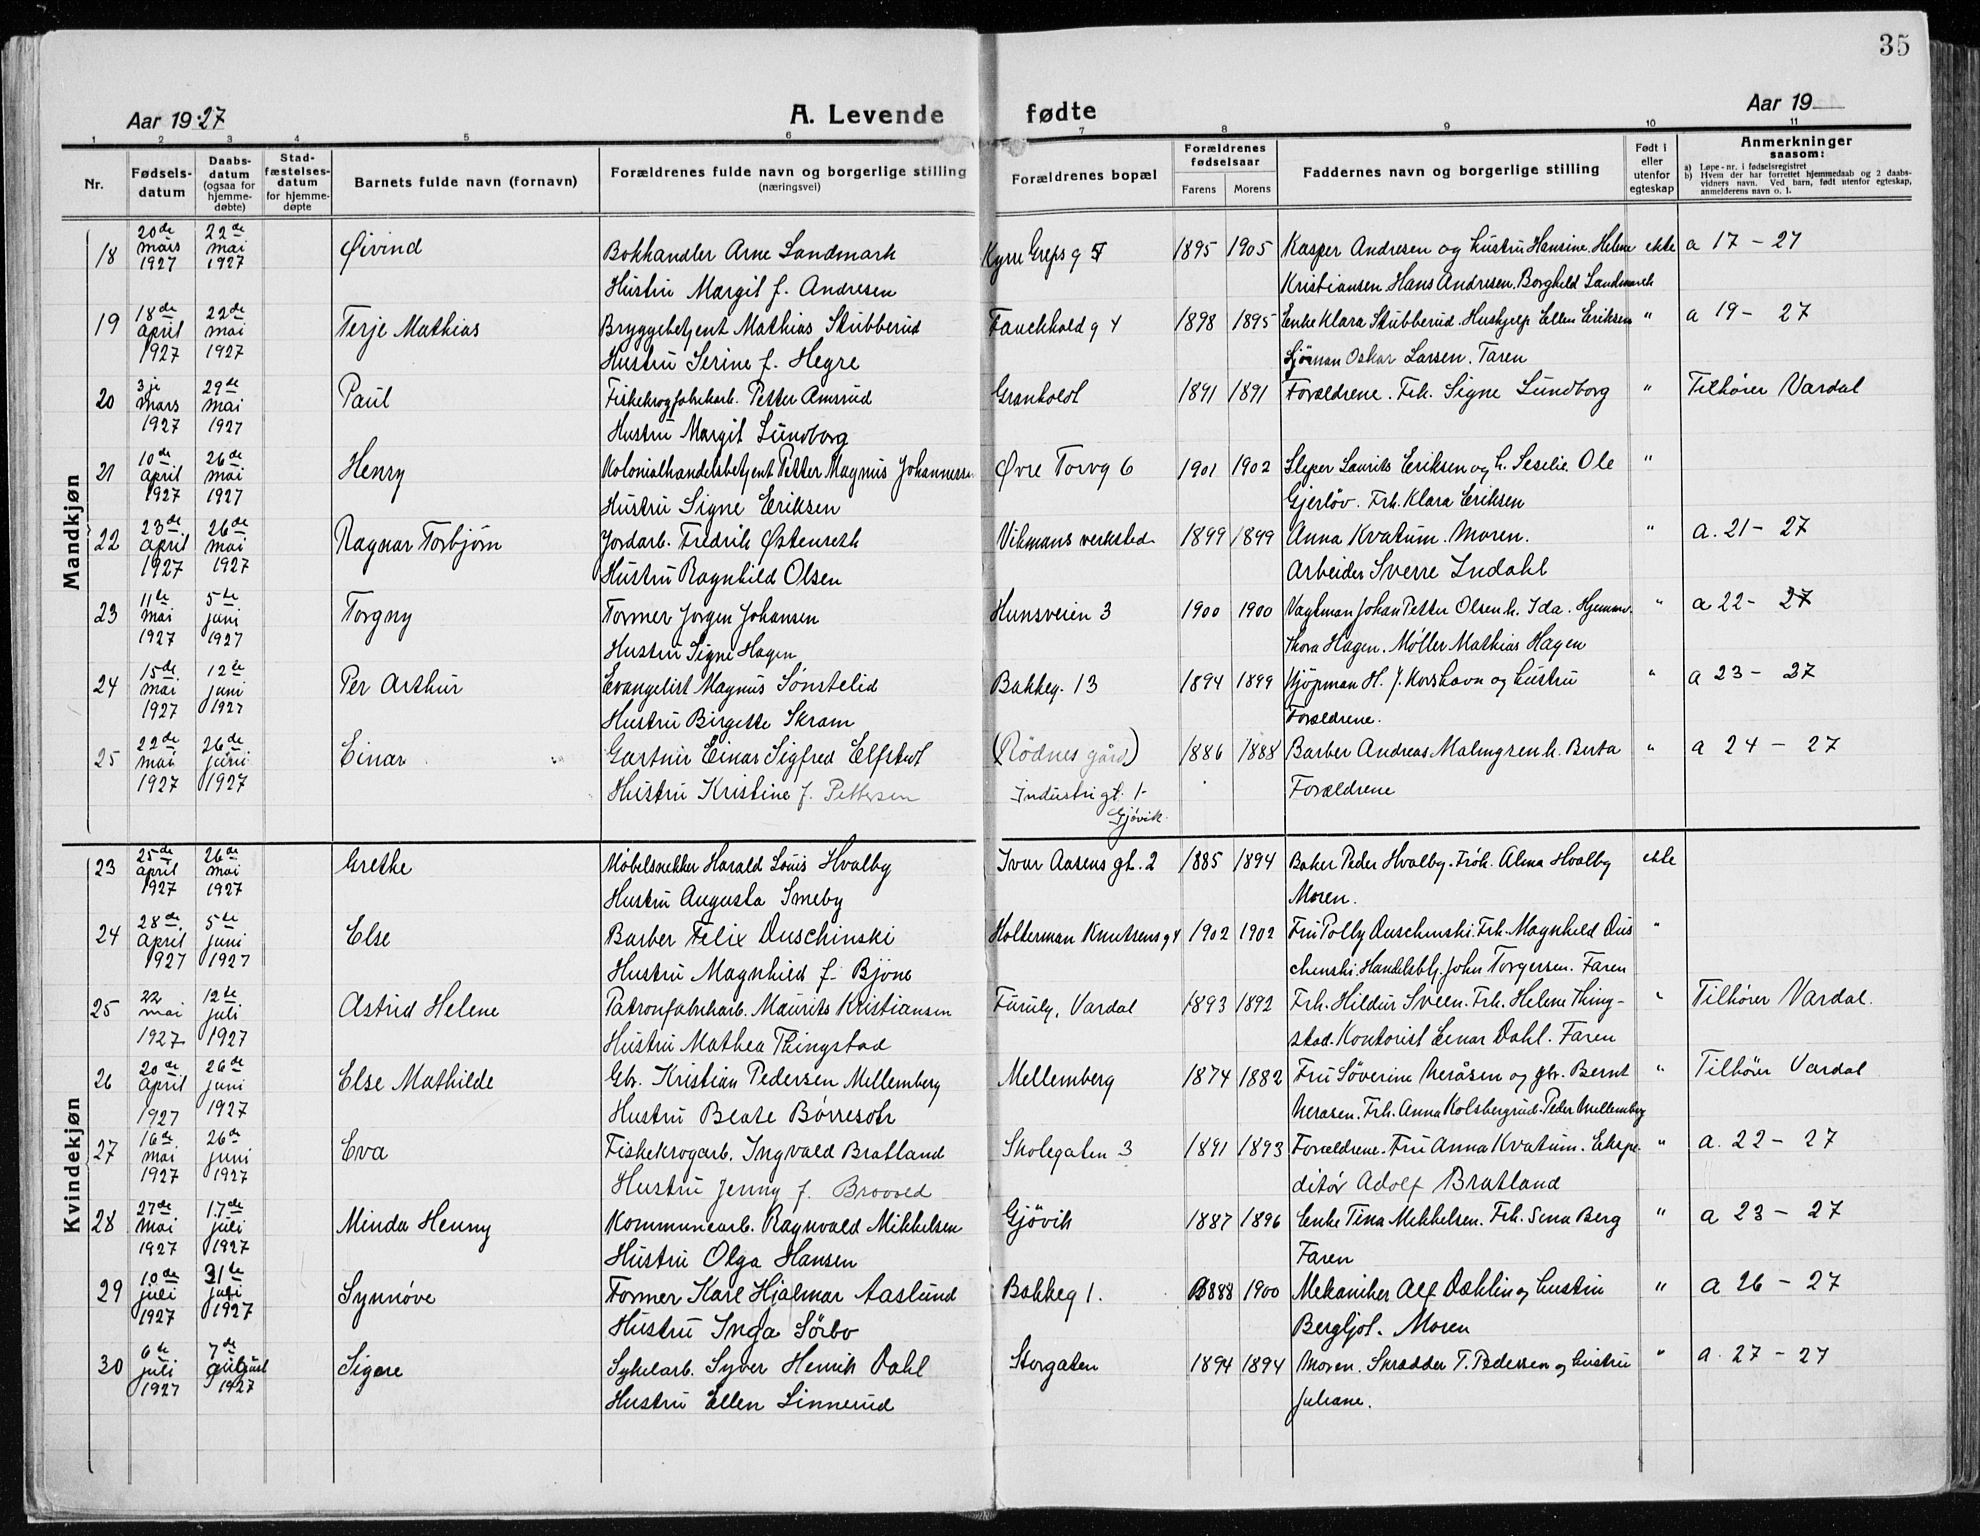 35
Aar 1927 A. Levende fødte Aar 19
1 2 3 4 5 6 7 8 9 10 11
Nr. Fødsels-datum Daabs-datum (ogsaa for hjemme-døbte) Stad-fæstelses-datum for hjemme-døpte Barnets fulde navn (fornavn) Forældrenes fulde navn og borgerlige stilling (næringsvei) Forældrenes bopæl Forældrenes fødselsaar Farens Morens Faddernes navn og borgerlige stilling Født i eller utenfor egteskap Anmerkninger saasom:
a) Løpe-nr. i fødselsregistret
b) Hvem der har forrettet hjemmedaab og 2 daabs-vidners navn. Ved barn, født utenfor egteskap, anmelderens navn o. l.
Mandkjøn
18 20de mars 1927 22de mai 1927 Øivind Bokhandler Arne Landmark Kyrre Greps g 5 1895 1905 Kasper Andresen og hustru Hansine. Helene ekte a 17 - 27
Hustru Margit f. Andresen Kristiansen. Hans Andresen. Borghild Landmark
19 18de april 1927 22de mai 1927 Terje Mathias Bryggebetjent Mathias Stubberud Fauchhold g 4 1898 1895 Enke Klara Stubberud. Hushjelp Ellen Eriksen " a 19 - 27
Hustru Serine f. Hegre Sjöman Oskar Larsen. Faren
20 3je mars 1927 29de mai 1927 Paul Fiskekrogfabrikarb. Petter Amsrud Granholdt 1891 1891 Forældrene. Frk. Signe Lundborg " Tilhører Vardal
Hustru Margit Lundborg
21 10de april 1927 26de mai 1927 Henry Kolonialhandelsbetjent Petter Magnus Johannessen Øvre Torvg 6 1901 1902 Sleper Laurits Eriksen og h. Sesilie. Ole "
Hustru Signe Eriksen Gjerløv. Frk. Klara Eriksen
22 23de april 1927 26de mai 1927 Ragnar Torbjørn Jordarb. Fredrik Østenreth Vikmans verksted 1899 1899 Anna Kvatum. Moren. " a. 21 - 27
Hustru Ragnhild Olsen Arbeider Sverre Indahl
23 11te mai 1927 5te juni 1927 Torgny Former Jørgen Johansen Hunsveien 3 1900 1900 Vagtman Johan Petter Olsen h. Ida. Hjemmv. " a 22 - 27
Hustru Signe Hagen Thora Hagen. Møller Mathias Hagen
24 15de mai 1927 12te juni 1927 Per Arthur Evangelist Magnus Sønstelid Bakkeg. 13 1894 1899 Kjøpman H. J. Korshavn og hustru " a 23 - 27
Hustru Birgette Skram Forældrene.
25 22de mai 1927 26de juni 1927 Einar Gartner Einar Sigfred Elfstedt (Rødnes gård) 1886 1888 Barber Andreas Malmgren h. Berta " a 24 - 27
Hustru Kristine f. Pettersen Industrigt. 1 - Gjøvik. Forældrene
Kvindekjøn
23 25de april 1927 26de mai 1927 Grethe Møbelsnekker Harald Louis Hvalby Ivar Aasens gt. 2 1885 1894 Baker Peder Hvalby. Frøk. Alma Hvalby ekte
Hustru Augusta Smeby Moren.
24 28de april 1927 5te juni 1927 Else Barber Felix Duschinski Holterman Knutsens g 4 1902 1902 Fru Polly Duschinski. Frk. Magnhild Dus "
Hustru Magnhild f. Bjøne chinski. Handelsbtj. John Torgersen. Faren
25 22 mai 1927 12te juli 1927 Astrid Helene Patronfabrikarb. Maurits Kristiansen Furuly, Vardal 1893 1892 Frk. Hildur Sveen. Frk. Helene Thing- " Tilhører Vardal.
Hustru Mathea Thingstad stad. Kontorist Einar Dahl. Faren
26 20de april 1927 26de juni 1927 Else Mathilde Gbr. Kristian Pedersen Mellemberg Mellemberg 1874 1882 Fru Søverine Neråsen og gbr. Bernt " Tilhører Vardal
Hustru Beate Børresdtr Neråsen. Frk. Anna Kolsbergrud. Peder Mellemberg
27 16de mai 1927 26de juni 1927 Eva Fiskekrogarb. Ingvald Bratland Skolegaten 3 1891 1893 Forældrene. Fru Anna Kvatum. Ekspe- " a. 22 - 27
Hustru Jenny f. Brovold ditör Adolf Bratland
28 27de mai 1927 17de juli 1927 Minda Henny Kommunearb. Ragnvald Mikkelsen Gjøvik 1887 1896 Enke Tina Mikkelsen. Frk. Sina Berg " a 23 - 27
Hustru Olga Hansen Faren
29 10de juli 1927 31te juli 1927 Synnøve Former Karl Hjalmar Aaslund Bakkeg 1. 1888 1900 Mekaniker Alf Dæhlin og hustru " a 26 - 27
Hustru Inga Sörbo Bergljot. Moren
30 6te juli 1927 7de august 1927 Signe Sykelarb. Syver Henrik Dahl Storgaten 1894 1894 Moren. Skrædder T. Pedersen og hustru " a. 27 - 27
Hustru Ellen Linnerud Juliane.